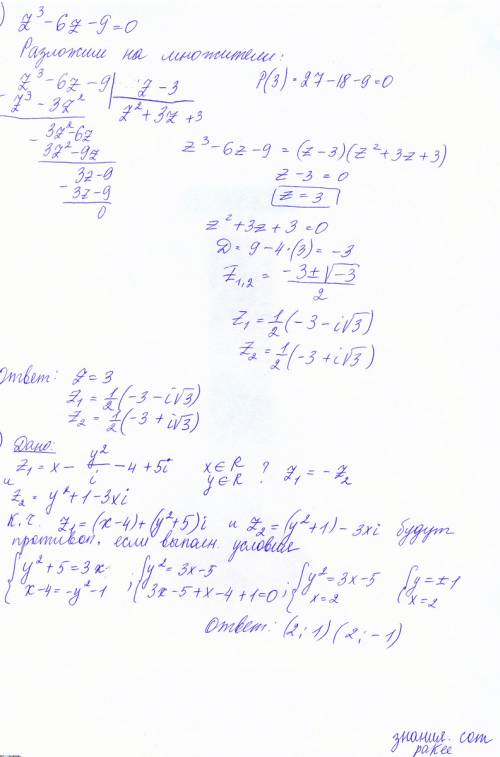 ) z³ - 6z - 9 = 0
Разложим на множители:
z³ - 6z - 9 | z - 3
- z³ - 3z² z² + 3z + 3
P(3) = 27 - 18 - 9 = 0
3z² - 6z
- 3z² - 9z
3z - 9
- 3z - 9
0
z³ - 6z - 9 = (z - 3)(z² + 3z + 3)
z - 3 = 0
z = 3
z² + 3z + 3 = 0
D = 9 - 4·(3) = -3
Z₁,₂ = (-3 ± √-3)/2
Z₁ = 1/2 (-3 - i√3)
Z₂ = 1/2 (-3 + i√3)
Ответ: Z = 3
Z₁ = 1/2 (-3 - i√3)
Z₂ = 1/2 (-3 + i√3)
) Дано:
Z₁ = x - y²/i - 4 + 5i x ∈ R ? Z₁ = -Z₂
и y ∈ R
Z₂ = y² + 1 - 3xi
К.ч. Z₁ = (x-4) + (y²+5)i и Z₂ = (y²+1) - 3xi будут
противоп, если выполн. условие
{ y² + 5 = 3x ; { y² = 3x - 5 ; { y² = 3x - 5 { y = ±1
x - 4 = -y² - 1 3x - 5 + x - 4 + 1 = 0 x = 2 x = 2
Ответ: (2; 1) (2; -1)
знания. com
ракее